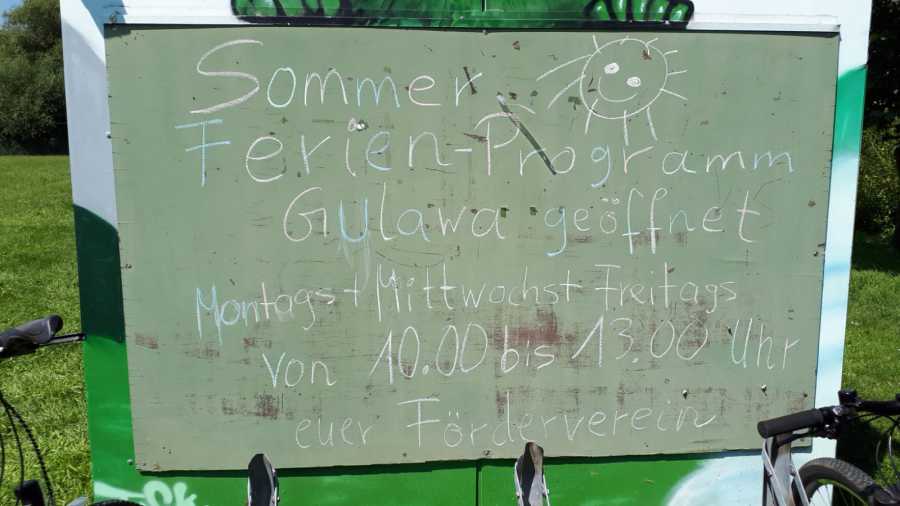 Sommer
Ferien-Programm
Gulawa geöffnet
Montags + Mittwochs + Freitags
von 10.00 bis 13.00 Uhr
euer Förderverein